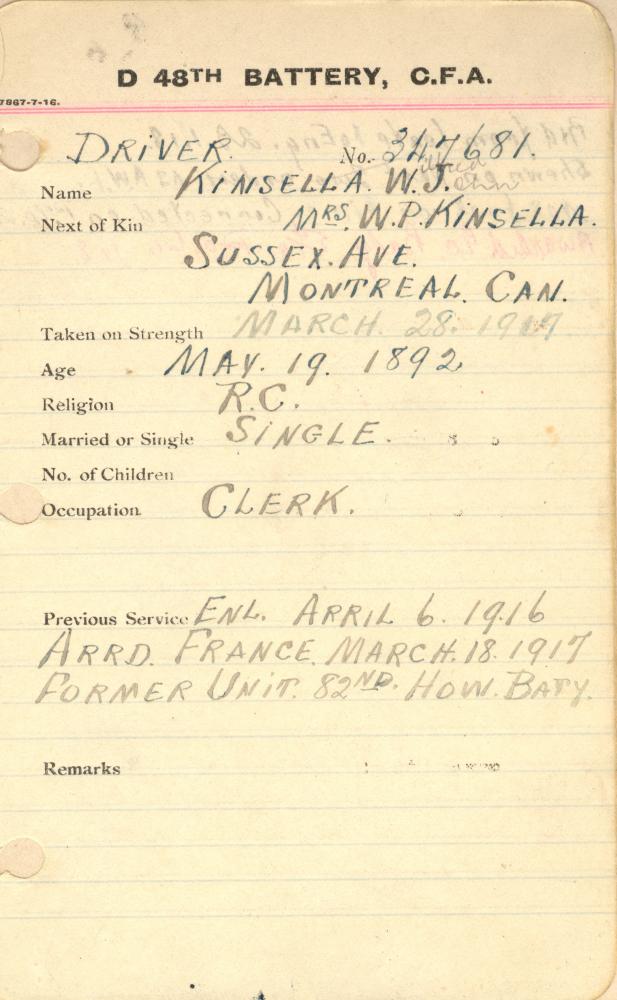 D 48TH BATTERY, C.F.A.
7867-7-16.
DRIVER. No. 347681.
Name KINSELLA. W.J.
Next of Kin MRS. W.P. KINSELLA.
SUSSEX. AVE.
MONTREAL. CAN.
Taken on Strength MARCH. 28. 1917
Age MAY. 19. 1892
Religion R.C.
Married or Single SINGLE.
No. of Children
Occupation CLERK.
Previous Service ENL. APRIL 6. 1916
ARRD. FRANCE. MARCH. 18. 1917
FORMER UNIT. 82ND. HOW. BATY.
Remarks